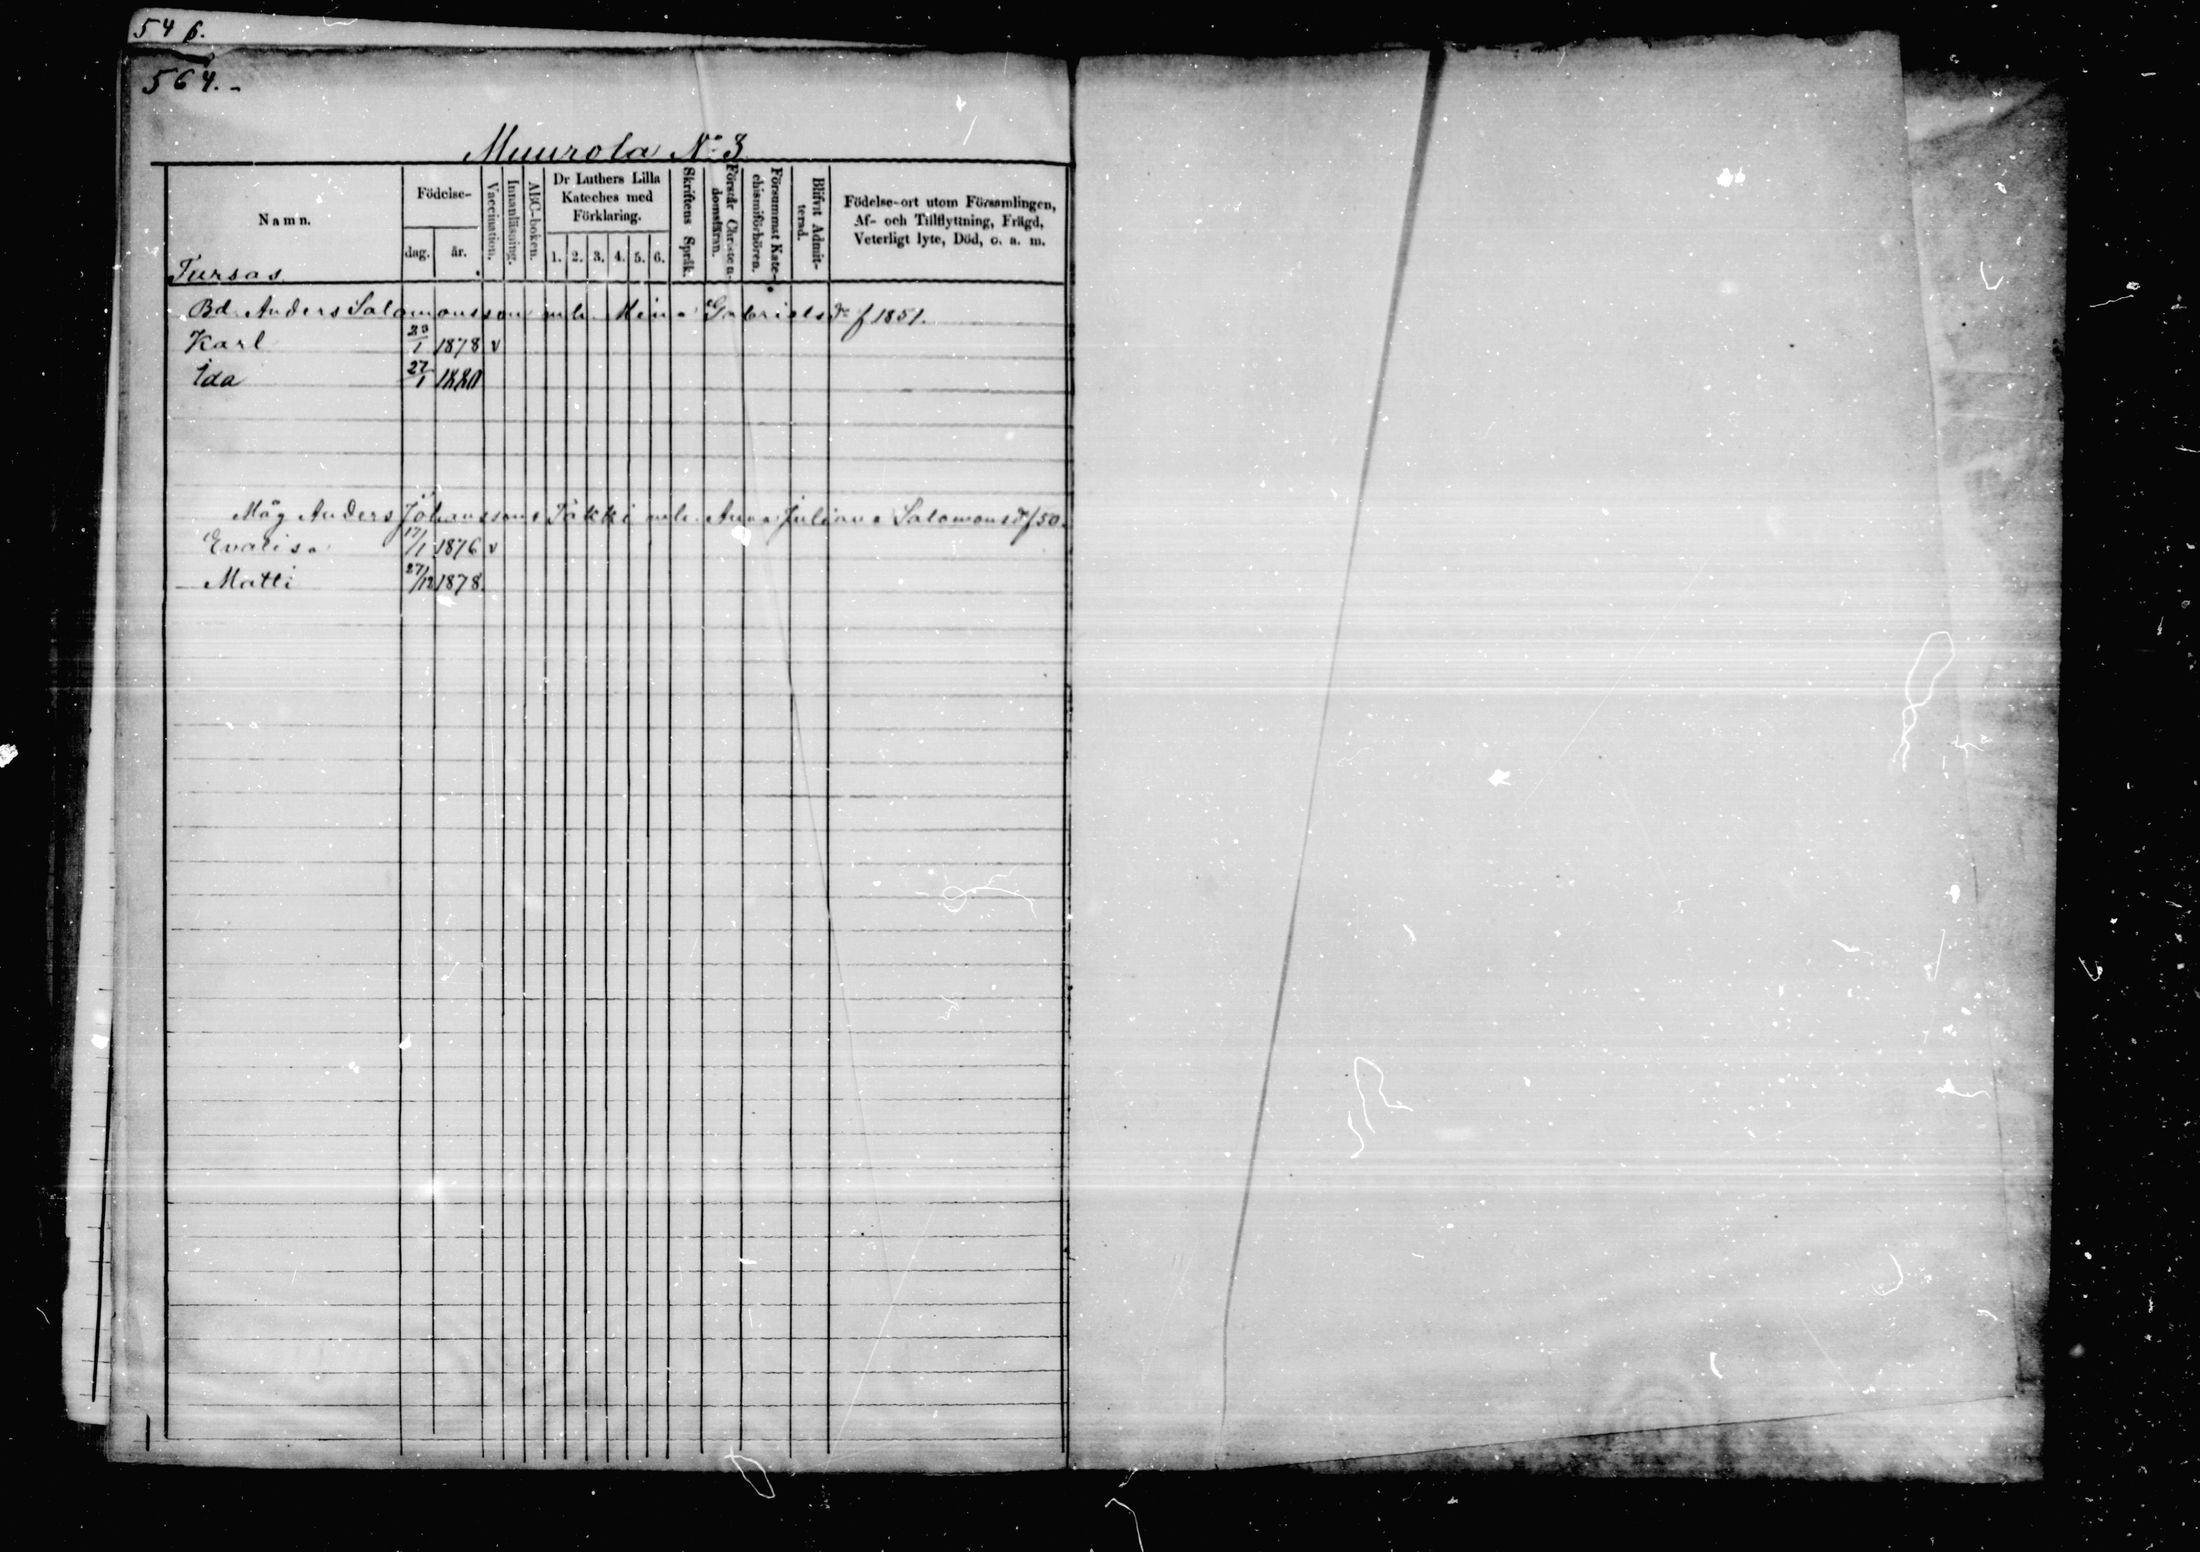 546.
564.-
Muurola No 3
Namn.
Födelse-
dag. år.
Vaccination.
Innanläsning.
ABC-boken.
Dr Luthers Lilla Kateches med Förklaring.
1. 2. 3. 4. 5. 6.
Skriftens Språk.
Förstår Christendomsläran.
Försummat Katechismiförhören.
Blifvit Admitterad.
Födelse-ort utom Församlingen,
Af- och Tillflyttning, Frägd,
Veterligt lyte, Död, o. a. m.
Tursas
Bd. Anders Salomonsson m h. Mina Gabrielsdr f 1851.
Karl 1878 v
Ida 27/1 1880
Måg Anders Johansson Takki m h. Anna Juliana Salomonsdr f 50.
Evalisa 17/1 1876 v
Matti 27/12 1878.